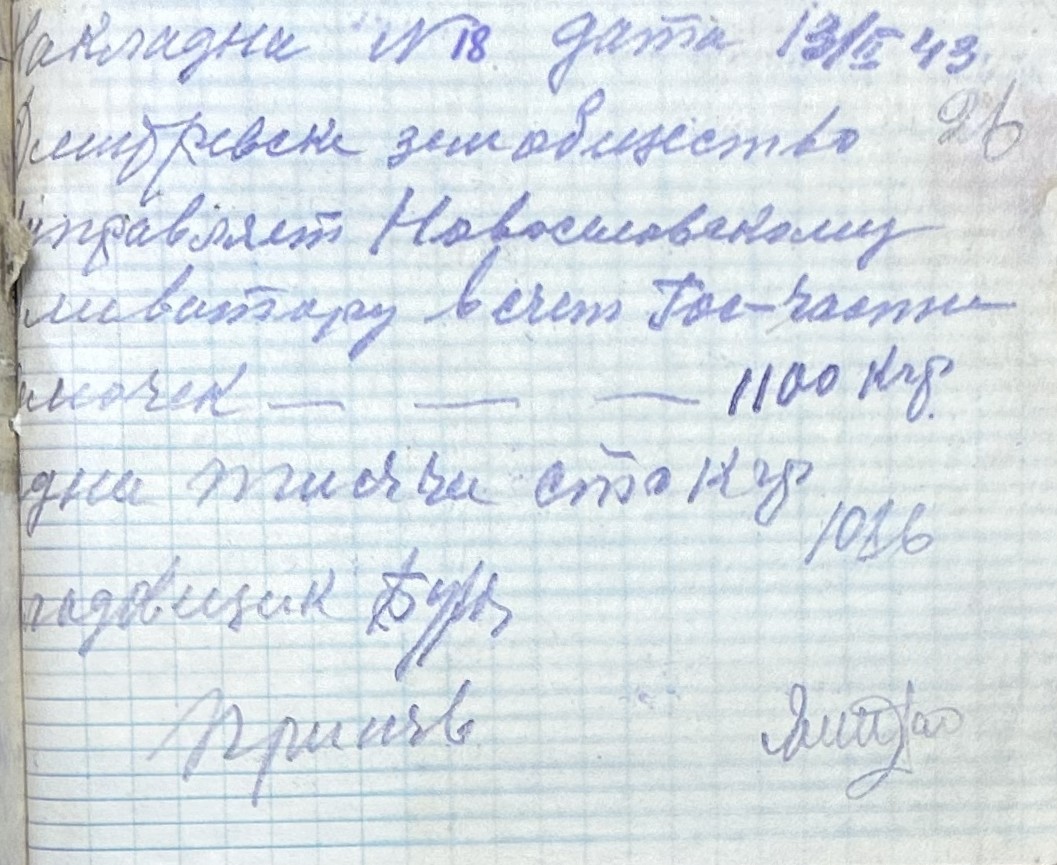 Накладна N 18 дата 13/II 43.
Дмитревске земобщество
отправляет Новоселовскому
еливатору в счет Гос-части
1100 Кгр.
одна тисяча сто Кгр
1016
кладовщик
Приняв